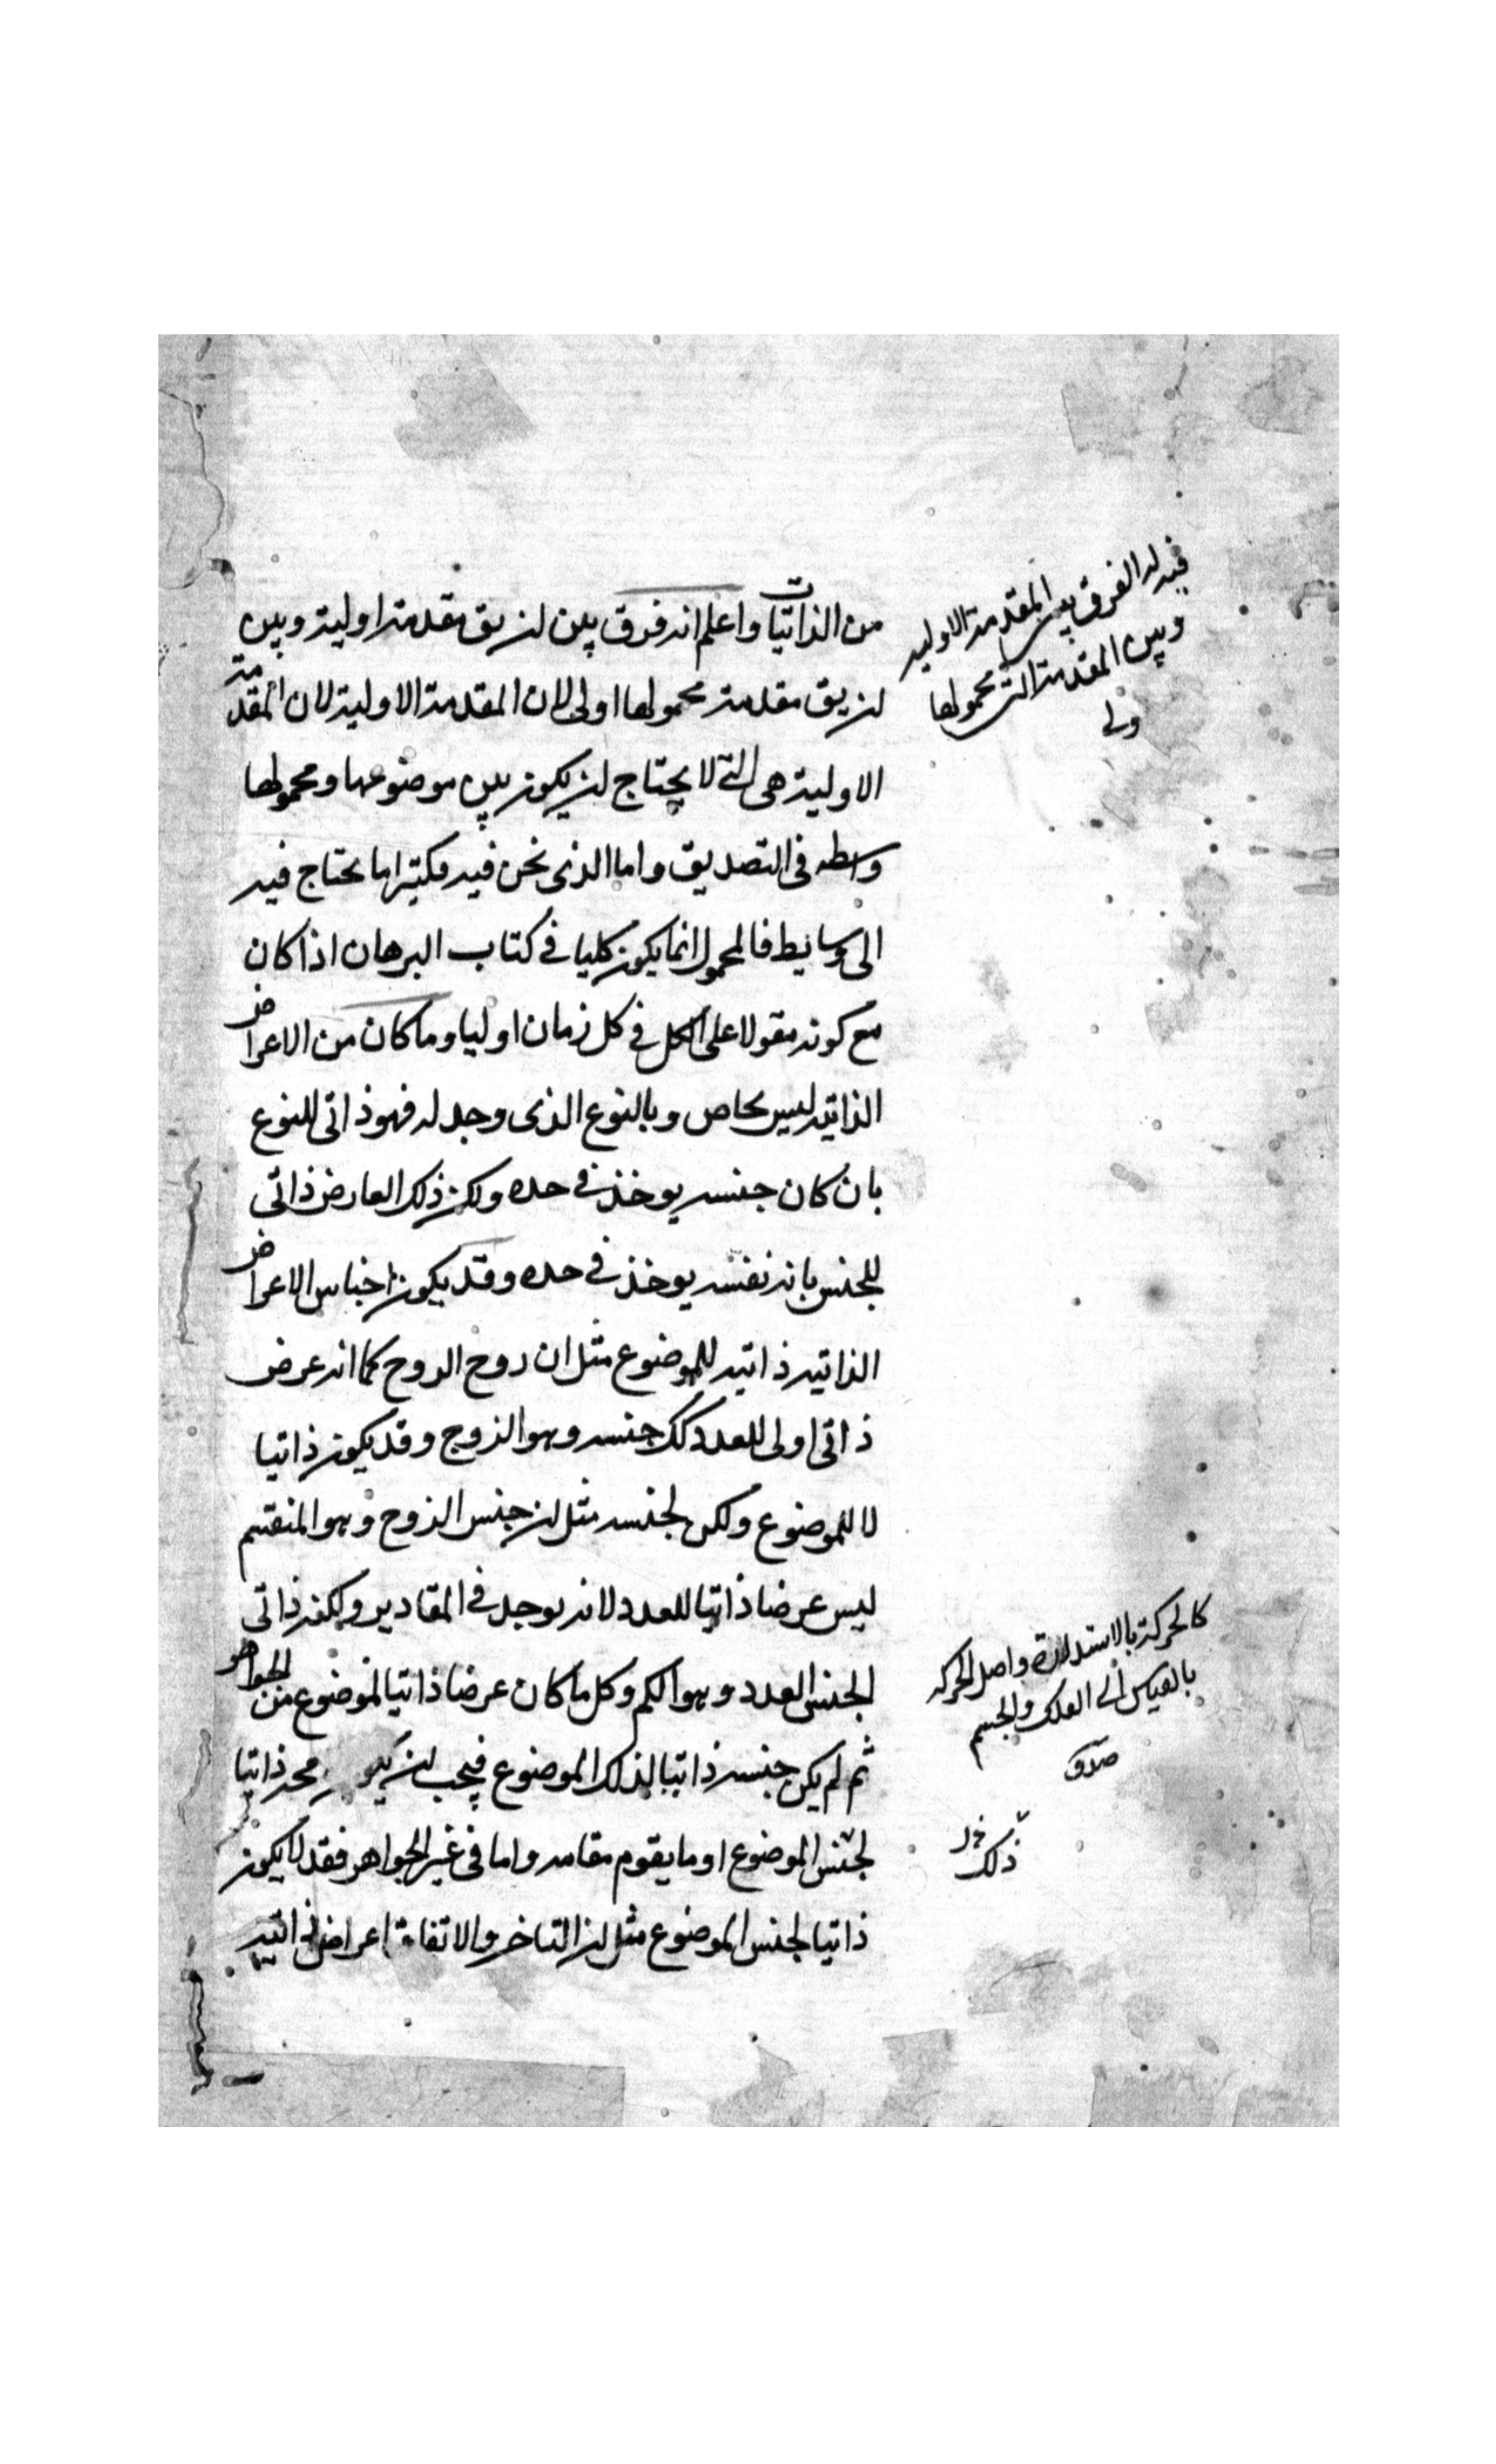 من الذاتيات واعلم انه فرق بين ان يق مقدمة اولية وبين
ان يق مقدمة محمولها اولى لان المقدمة الاولية لان المقدمة
الاولية هى التى لا يحتاج ان يكون بين موضوعها ومحمولها
واسطه فى التصديق واما الذى نحن فيه فكثيرا ما يحتاج فيه
الى وسايط فالمحمول انما يكون كليا فى كتاب البرهان اذا كان
مع كونه مقولا على الكل فى كل زمان اوليا وما كان من الاعراض
الذاتيه ليس بخاص وبالنوع الذى وجد له فهو ذاتى للنوع
بان كان جنسه يوخذ فى حده ولكن ذلك العارض ذاتى
للجنس بانه نفسه يوخذ فى حده وقد يكون اجناس الاعراض
الذاتيه ذاتيه للموضوع مثل ان زوج الزوج كما انه عرض
ذاتى اولى للعدد كك جنسه وهو الزوج وقد يكون ذاتيا
لا للموضوع ولكن لجنسه مثل ان جنس الزوج وهو المنقسم
ليس عرضا ذاتيا للعدد لانه يوجد فى المقادير ولكنه ذاتى
لجنس العدد وهو الكم وكل ما كان عرضا ذاتيا لموضوع من الجواهر
ثم لم يكن جنسه ذاتيا لذلك الموضوع فيجب ان ذاتيا
لجنس الموضوع او ما يقوم مقامه واما فى غير الجواهر فقد لا يكون
ذاتيا لجنس الموضوع مثل ان التاخر والاتفاق اعراض ذاتيه
فيه ان الفرق بين المقدمة الاوليه
وبين المقدمة التى محمولها
كالحركة بالاستدارة واصل الحركه
بالقياس الى الفلك والجسم
ذلك